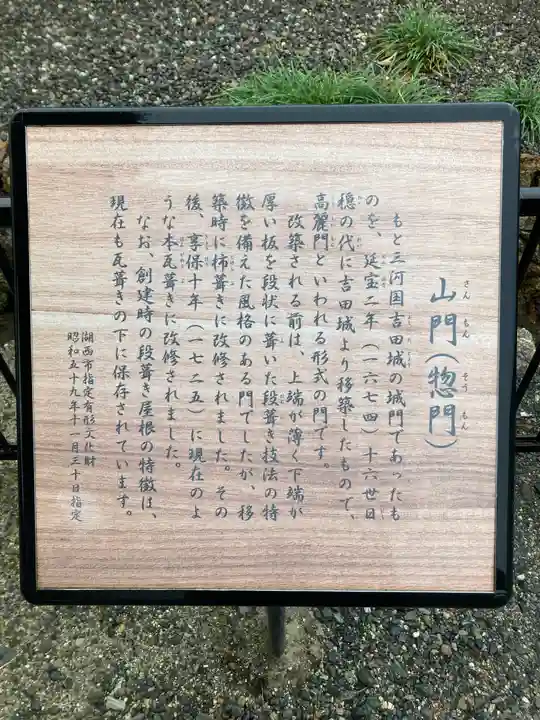 山門(惣門)
さんもん そうもん
もと三河国吉田城の城門であったも
のを、延宝二年(一六七四)十六世日
穏の代に吉田城より移築したもので、
高麗門といわれる形式の門です。
改築される前は、上端が薄く下端が
厚い板を段状に葺いた段葺き技法の特
徴を備えた風格のある門でしたが、移
築時に杮葺きに改修されました。その
後、享保十年(一七二五)に現在のよ
うな本瓦葺きに改修されました。
なお、創建時の段葺き屋根の特徴は、
現在も瓦葺きの下に保存されています。
湖西市指定有形文化財
昭和五十九年十一月三十日指定